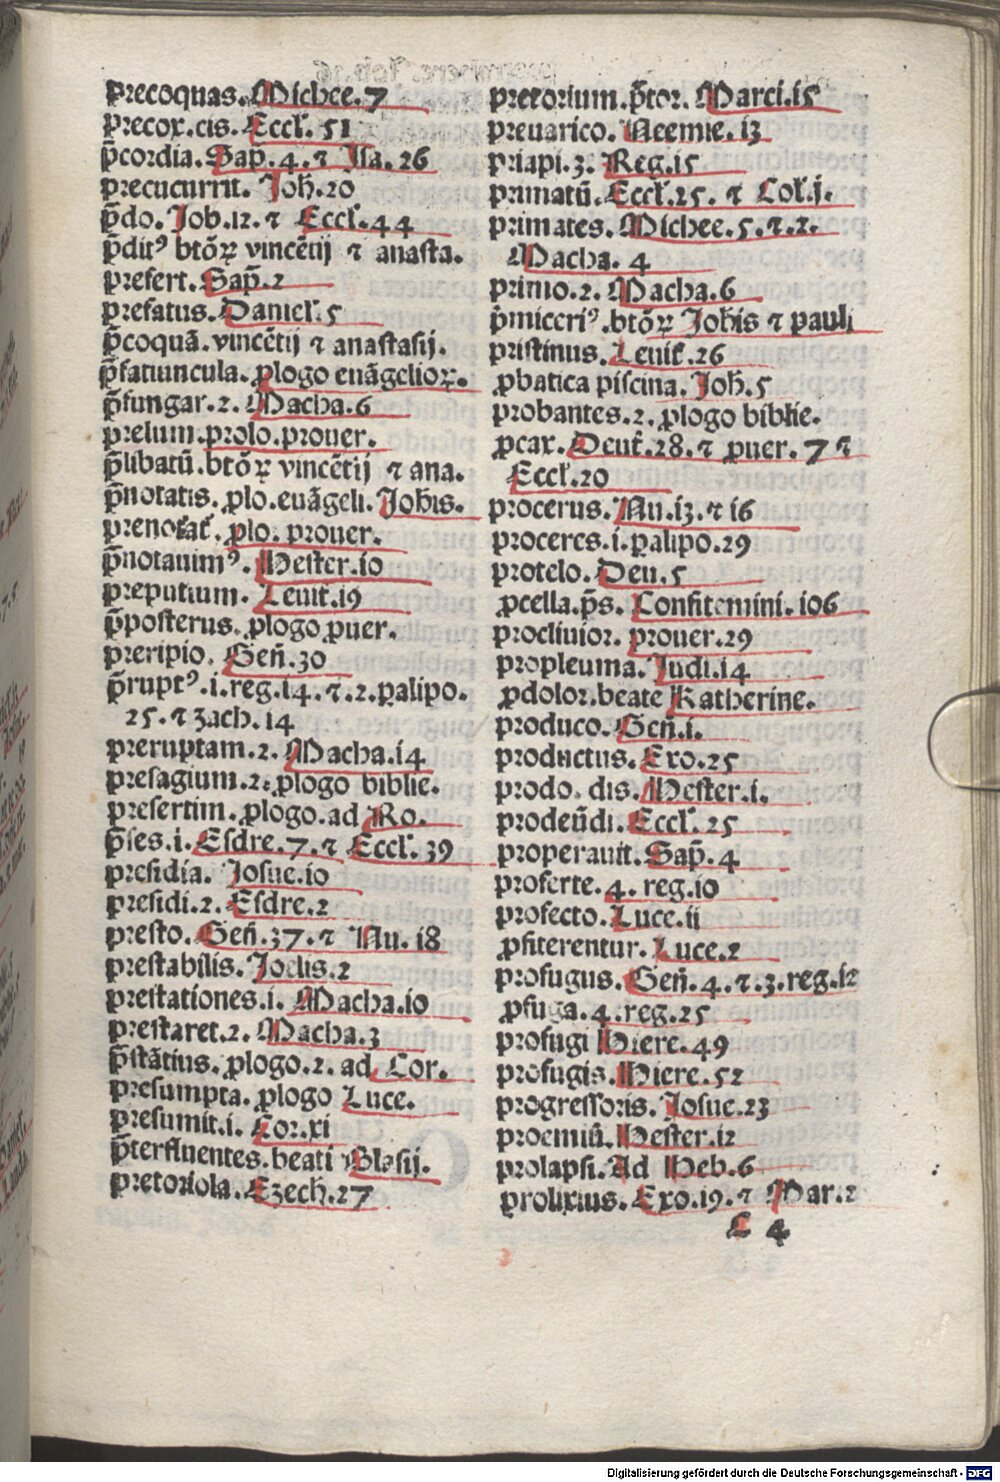 precoquas. Michee. 7
precox. cis. Eccl'. 51
p̄cordia. Sap̄. 4. ⁊ Isa. 26
precucurrit. Joh̄. 20
p̄do. Job. 12. ⁊ Eccl'. 44
p̄ditꝰ btōꝝ vincētij ⁊ anasta.
prefert. Sap̄. 2
prefatus. Daniel'. 5
p̄coquā. vincētij ⁊ anastasij.
p̄fatiuncula. ꝓlogo euāgelioꝝ.
p̄fungar. 2. Macha. 6
prelum. prolo. prouer.
p̄libatū. btōꝝ vincētij ⁊ ana.
p̄notatis. ꝓlo. euāgeli. Johis.
prenotat'. ꝓlo. prouer.
p̄notauimꝰ. Hester. 10
preputium. Leuit'. 19
p̄posterus. ꝓlogo ꝓuer.
preripio. Gen̄. 30
p̄ruptꝰ. i. reg. 14. ⁊. 2. ꝑalipo.
25. ⁊ zach. 14
preruptam. 2. Macha. 14
presagium. 2. ꝓlogo biblie.
presertim. ꝓlogo. ad Ro.
p̄ses. i. Esdre. 7. ⁊ Eccl'. 39
presidia. Josue. 10
presidi. 2. Esdre. 2
presto. Gen̄. 37. ⁊ Nu. 18
prestabilis. Joelis. 2
prestationes. i. Macha. 10
prestaret. 2. Macha. 3
p̄stātius. ꝓlogo. 2. ad Cor.
presumpta. ꝓlogo Luce.
presumit. i. Cor. xi
p̄terfluentes. beati Blasij.
pretoriola. Ezech. 27
pretorium. p̄tor. Marci. 15
preuarico. Neemie. 13
priapi. 3. Reg. 15
primatū. Eccl'. 25. ⁊ Col'. j.
primates. Michee. 5. ⁊. 2.
Macha. 4
primo. 2. Macha. 6
p̄miceriꝰ. btōꝝ Joh̄is ⁊ pauli
pristinus. Leuit'. 26
ꝓbatica piscina. Joh̄. 5
probantes. 2. ꝓlogo biblie.
ꝓcax. Deut'. 28. ⁊ ꝓuer. 7 ⁊
Eccl'. 20
procerus. Nu. 13. ⁊ 16
proceres. i. ꝑalipo. 29
protelo. Deu. 5
ꝓcella. p̄s. Confitemini. 106
procliuior. prouer. 29
propleuma. Judi. 14
ꝓdolor. beate Katherine.
produco. Gen̄. i.
productus. Exo. 25
prodo. dis. Hester. i.
prodeūdi. Eccl'. 25
properauit. Sap̄. 4
proferte. 4. reg. 10
profecto. Luce. ii
ꝓfiterentur. Luce. 2
profugus. Gen̄. 4. ⁊. 3. reg. 12
ꝓfuga. 4. reg. 25
profugi Hiere. 49
profugis. Hiere. 52
progressoris. Josue. 23
proemiū. Hester. 12
prolapsi. Ad Heb. 6
prolixius. Exo. 19. ⁊ Mar. 2
L 4
Digitalisierung gefördert durch die Deutsche Forschungsgemeinschaft - DFG